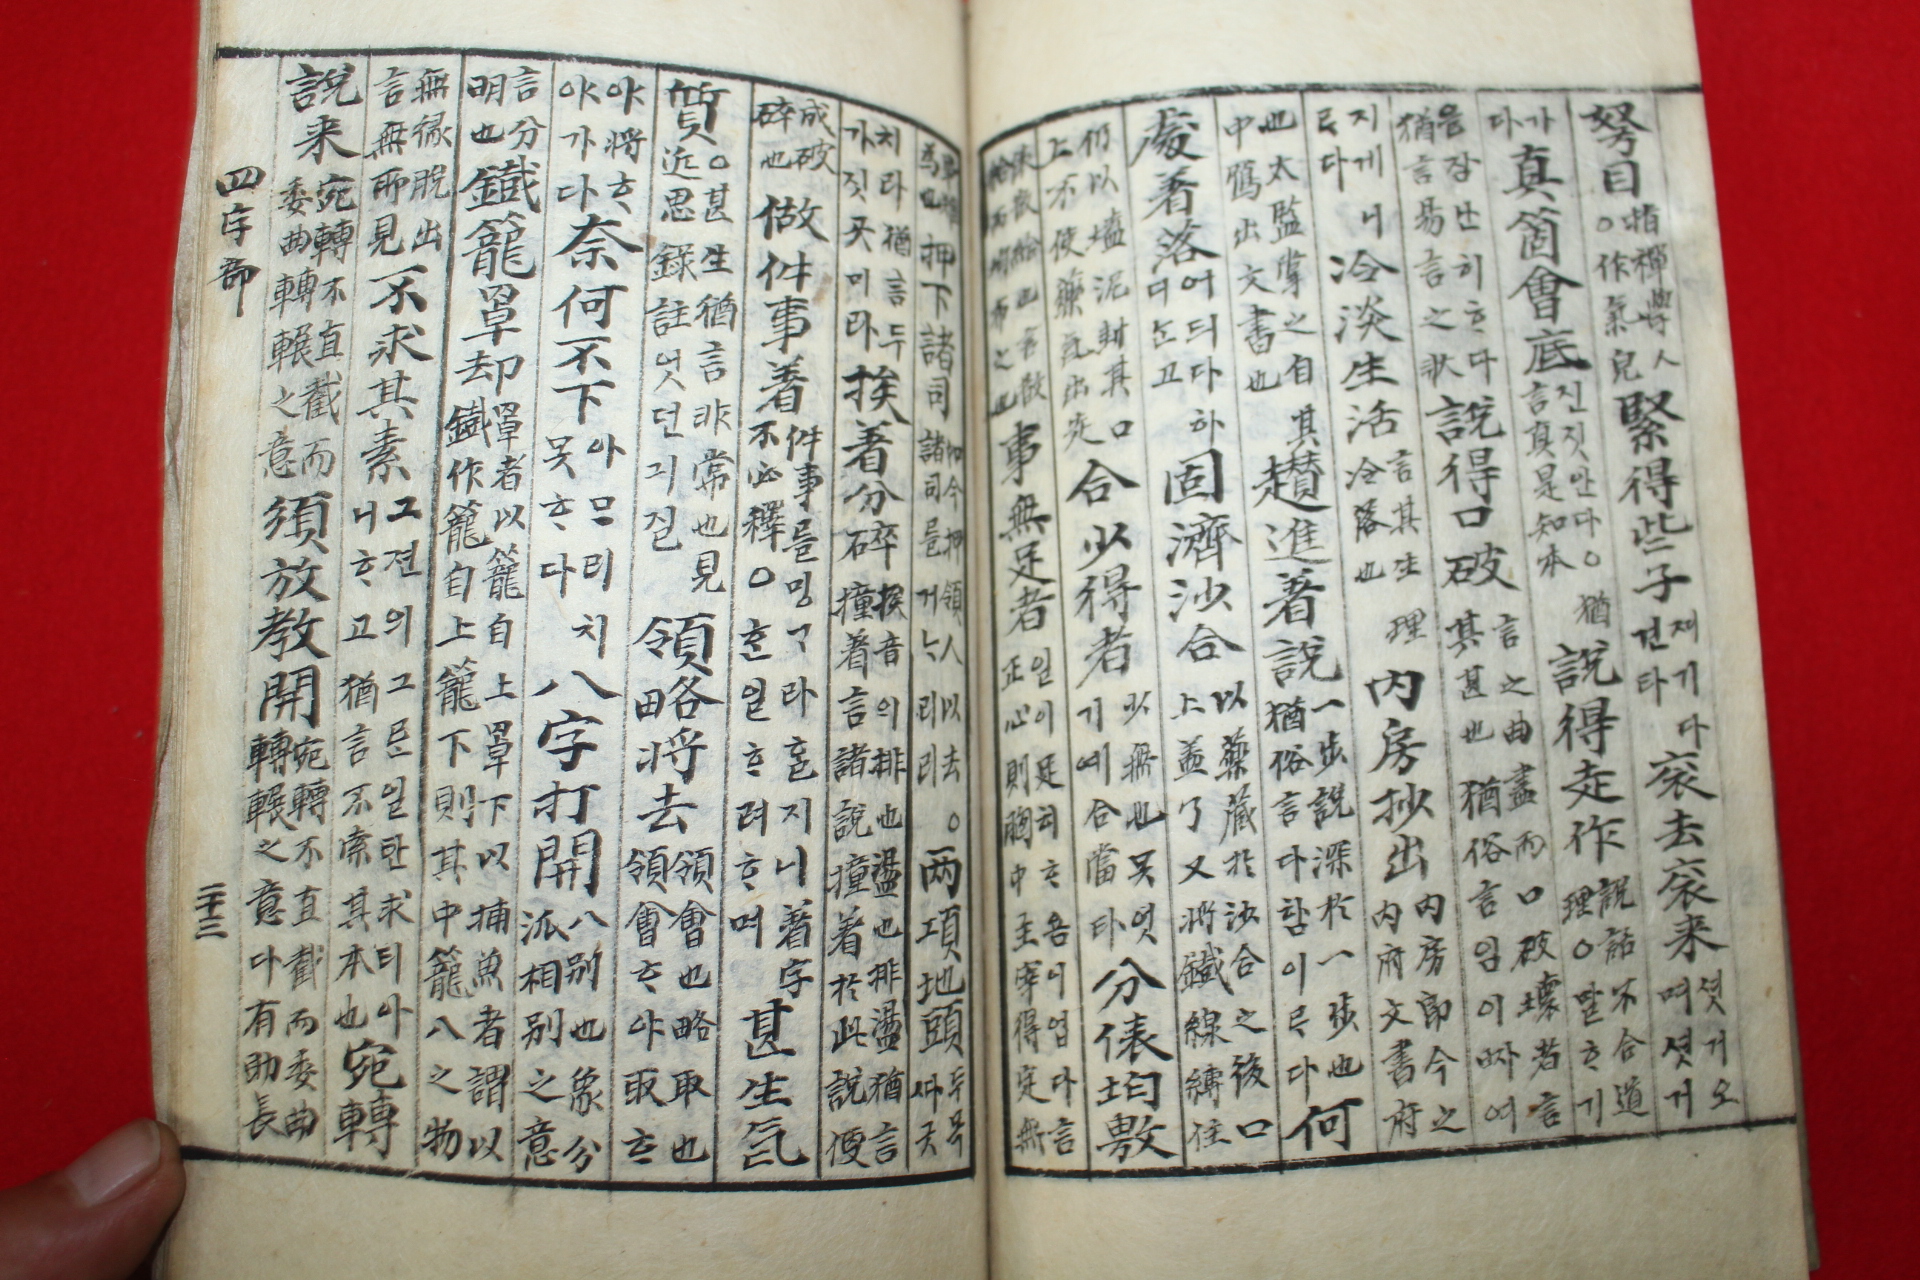 努目 人 ○作氣皃 緊得些子 져기다 긴타 滾去滾来 섯거오 며섯거
가 다 真箇會底 진짓안다○猶 言真是知本 說得走作 說話不合道 理○말ᄒᆞ기
을쟝난히ᄒᆞ다 猶言易言之狀 說得口破 言之曲盡而口破壞者言 其甚也猶俗言입이ᄧᆞ여
지게 ᄅᆞ다니 冷淡生活 言其生理 冷落也 內房抄出 內房郎今之 內府文書府
也太監掌之自 中鴈出文書也 趲進著說 一步說深於一步也 其猶俗言다함이ᄅᆞ다 何
處著落 어듸다하 고 固濟沙合 以藥藏於沙合之後口 上盖了又將鐵線縛住
仍以塩泥封其口 上不使藥氣出走 合少得者 少無也못엿 기예合當타 分俵均敷
俵散給也 事無足者 일이足히ᄒᆞ욤이업다言 正心則胸中主宰得定無
押下諸司 如今押領人以去○ 諸司를거ᄂᆞ리리 两項地頭 두목
치라猶言두 가짓곳미라 挨著分碎 挨音의排也盪也排盪猶言 撞著言諸說撞著於此說便
成破 碎也 做件事著 件事를밍ᄀᆞ라홀지니著字 不必釋○ᄒᆞᆫ일ᄒᆞ려ᄒᆞ며 甚生氣
質 ○甚生猶言非常也見 近思錄註엇던긔질 領略將去 領會也略取也 領會ᄒᆞ야取ᄒᆞ
야將ᄒᆞ 야가다 奈何不下 아ᄆᆞ리치 못ᄒᆞ다 八字打開 八別也象分 派相別之意
言分 明也 鐵籠罩却 罩者以籠自上罩下以捕魚者謂以 鐵作籠自上籠下則其中籠入之物
無緣脫出 言無所見 不求其素 그젼의그른일란求티아 니ᄒᆞ고猶言不索其本也 宛轉
說来 宛轉不直截而 委曲轉輾之意 須放教開 宛轉不直截而委曲 轉輾之意다有助長
四字部 二十三